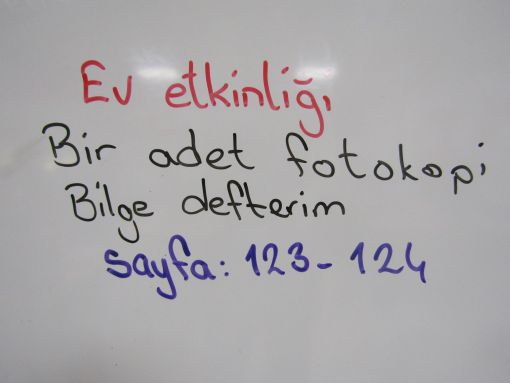 Ev etkinliğı
Bir adet fotokopi
Bilge defterim
sayfa: 123-124